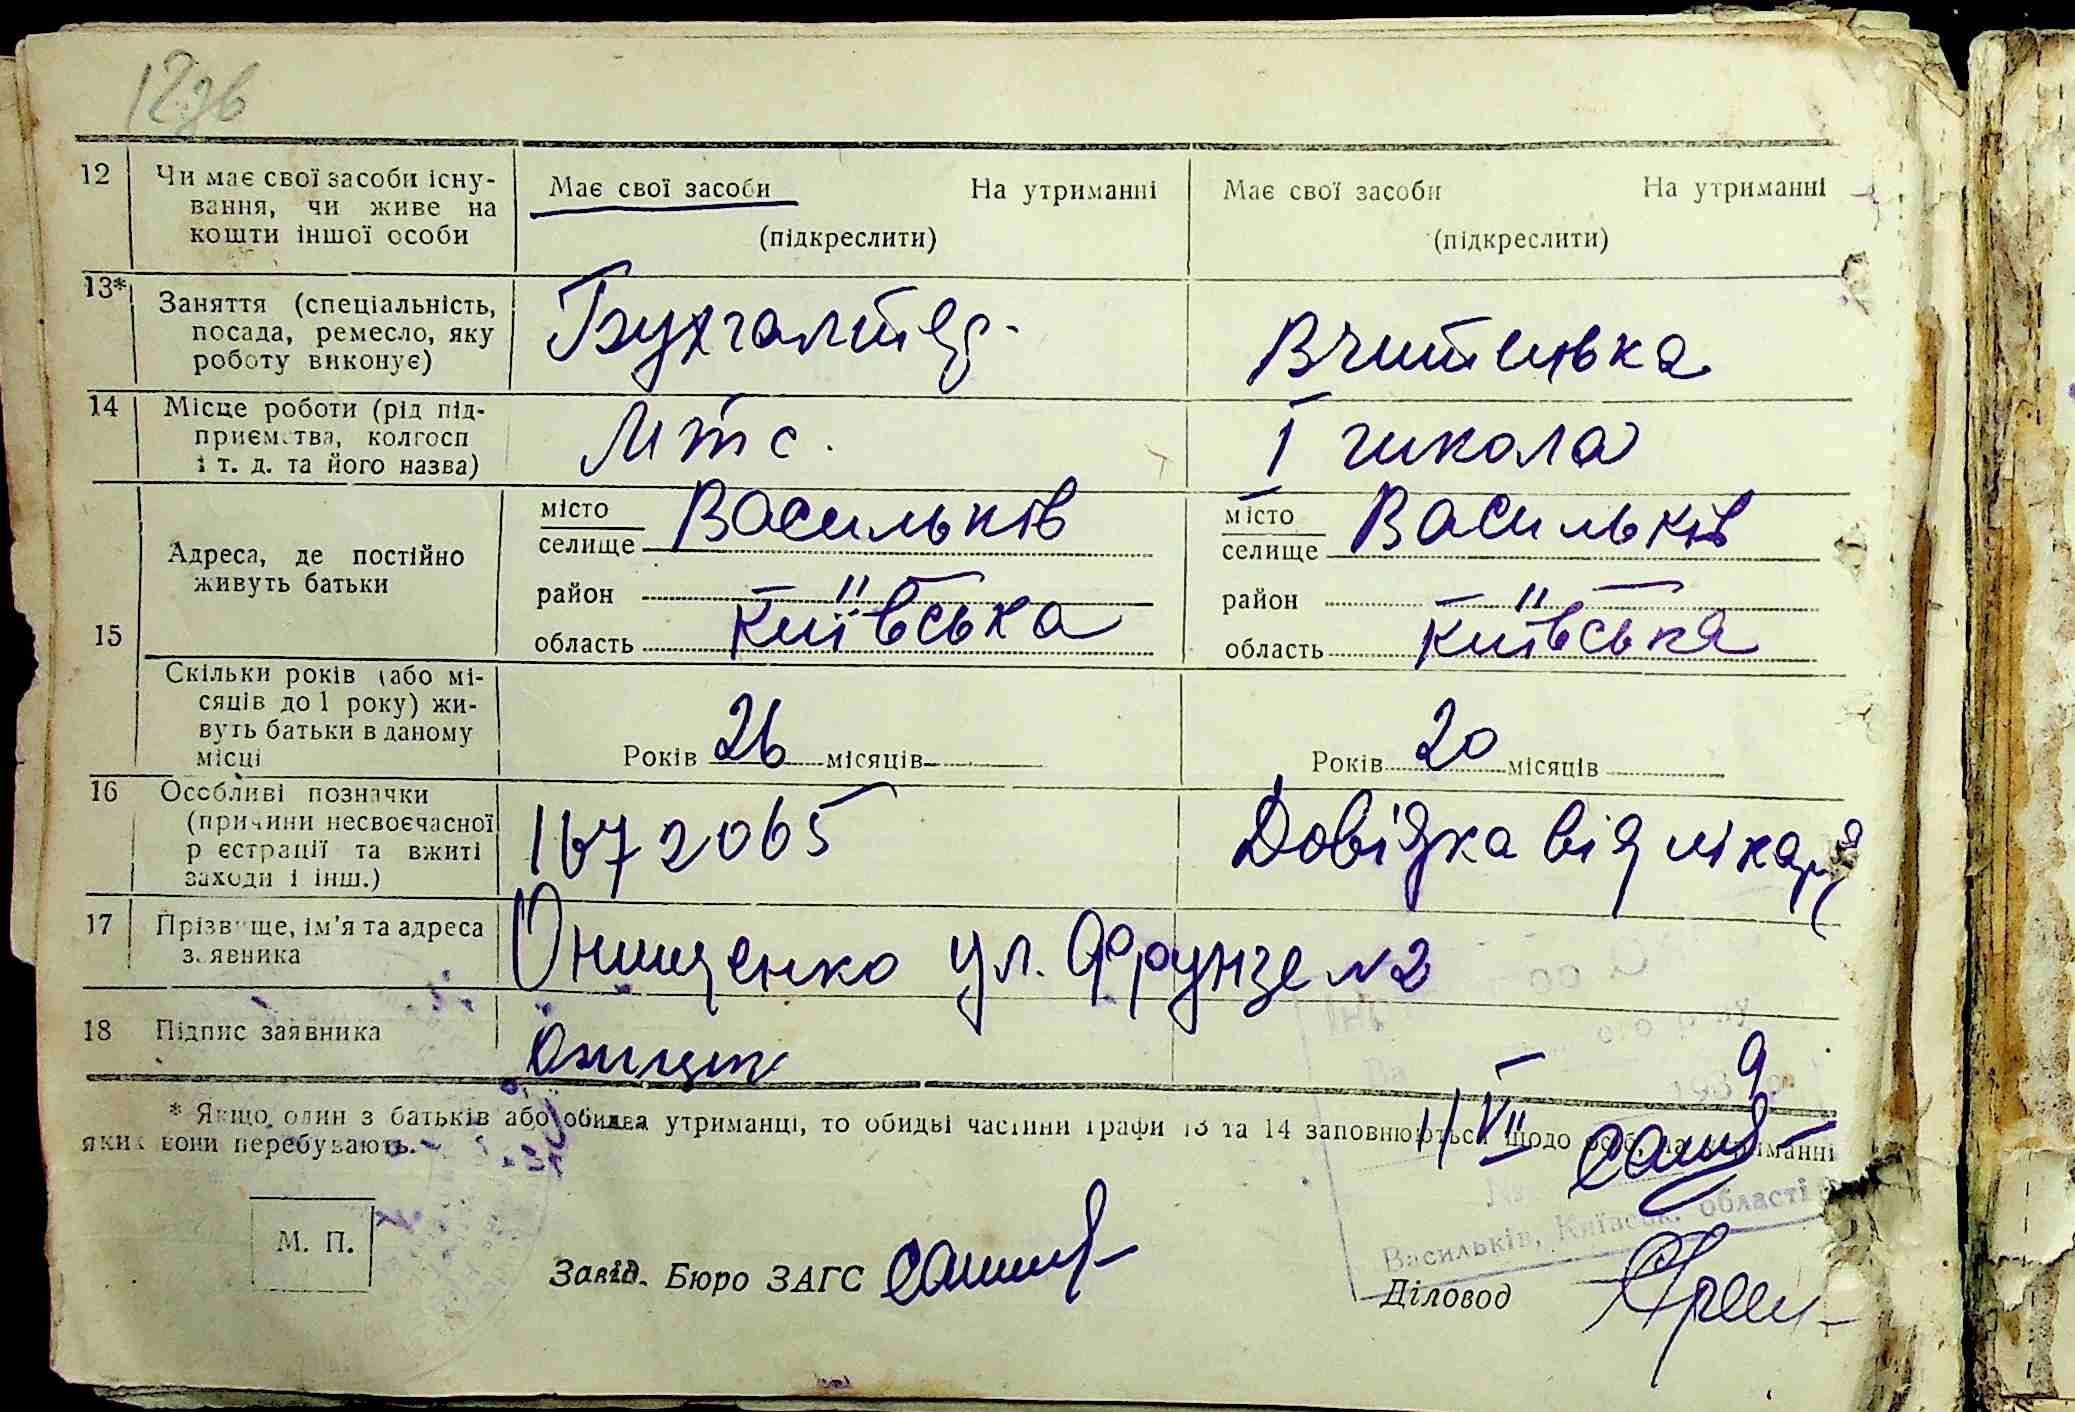 12зв
12 Чи має свої засоби існу-
вання, чи живе на
кошти іншої особи
Має свої засоби На утриманні
(підкреслити)
Має свої засоби На утриманні
(підкреслити)
13* Заняття (спеціальність,
посада, ремесло, яку
роботу виконує)
Бухгалтер
Вчителька
14 Місце роботи (рід під-
приємства, колгосп
і т. д. та його назва)
МТС.
I школа
15 Адреса, де постійно
живуть батьки
місто Васильків
селище
район "
область Київська
місто Васильків
селище
район "
область Київська
Скільки років (або мі-
сяців до 1 року) жи-
вуть батьки в даному
місці
Років 26 місяців
Років 20 місяців
16 Особливі позначки
(причини несвоєчасної
реєстрації та вжиті
заходи і інш.)
1672065
Довідка від лікаря
17 Прізвище, ім'я та адреса
заявника
Онищенко ул. Фрунзе №2
18 Підпис заявника
Онищ
* Якщо один з батьків або обидва утриманці, то обидві частини графи 13 та 14 заповнюються щодо осіб, на утриманні
яких вони перебувають.
11/VII 9
193
Васильків, Київськ. області
М. П.
Завід. Бюро ЗАГС
Діловод